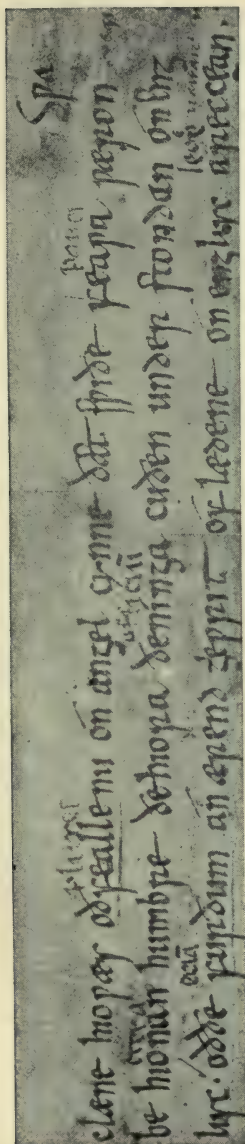 Sƿa
clæne hio ƿæs oðfeallenu on angel cynne ðæt sƿiðe feaƿa ƿæron
pauci
be hionan humbre ðe hiora ðeninga cuðen understondan on eng
citra officiū
lisc. oððe furðum an ærend geƿrit of lædene on englisc areccean.
etiā